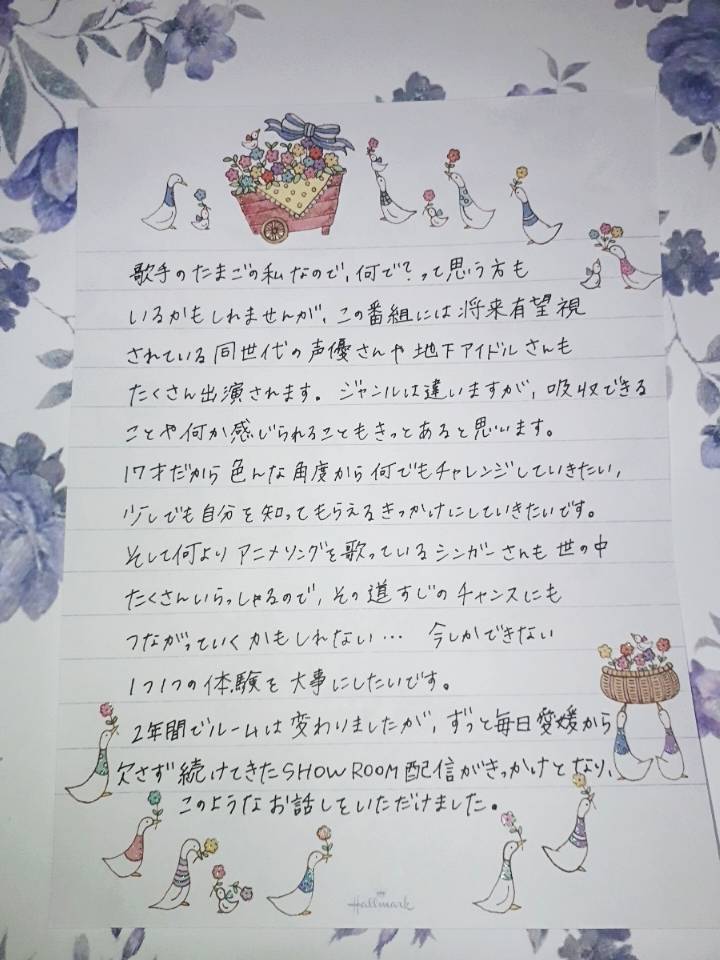 歌手のたまごの私なので、何で?って思う方も
いるかもしれませんが、この番組には将来有望視
されている同世代の声優さんや地下アイドルさんも
たくさん出演されます。ジャンルは違いますが、吸収できる
ことや何か感じられることもきっとあると思います。
17才だから色んな角度から何でもチャレンジしていきたい、
少しでも自分を知ってもらえるきっかけにしていきたいです。
そして何よりアニメソングを歌っているシンガーさんも世の中
たくさんいらっしゃるので、その道すじのチャンスにも
つながっていくかもしれない… 今しかできない
1つ1つの体験を大事にしたいです。
2年間でルームは変わりましたが、ずっと毎日愛媛から
欠さず続けてきたSHOWROOM配信がきっかけとなり、
このようなお話しをいただけました。
Hallmark